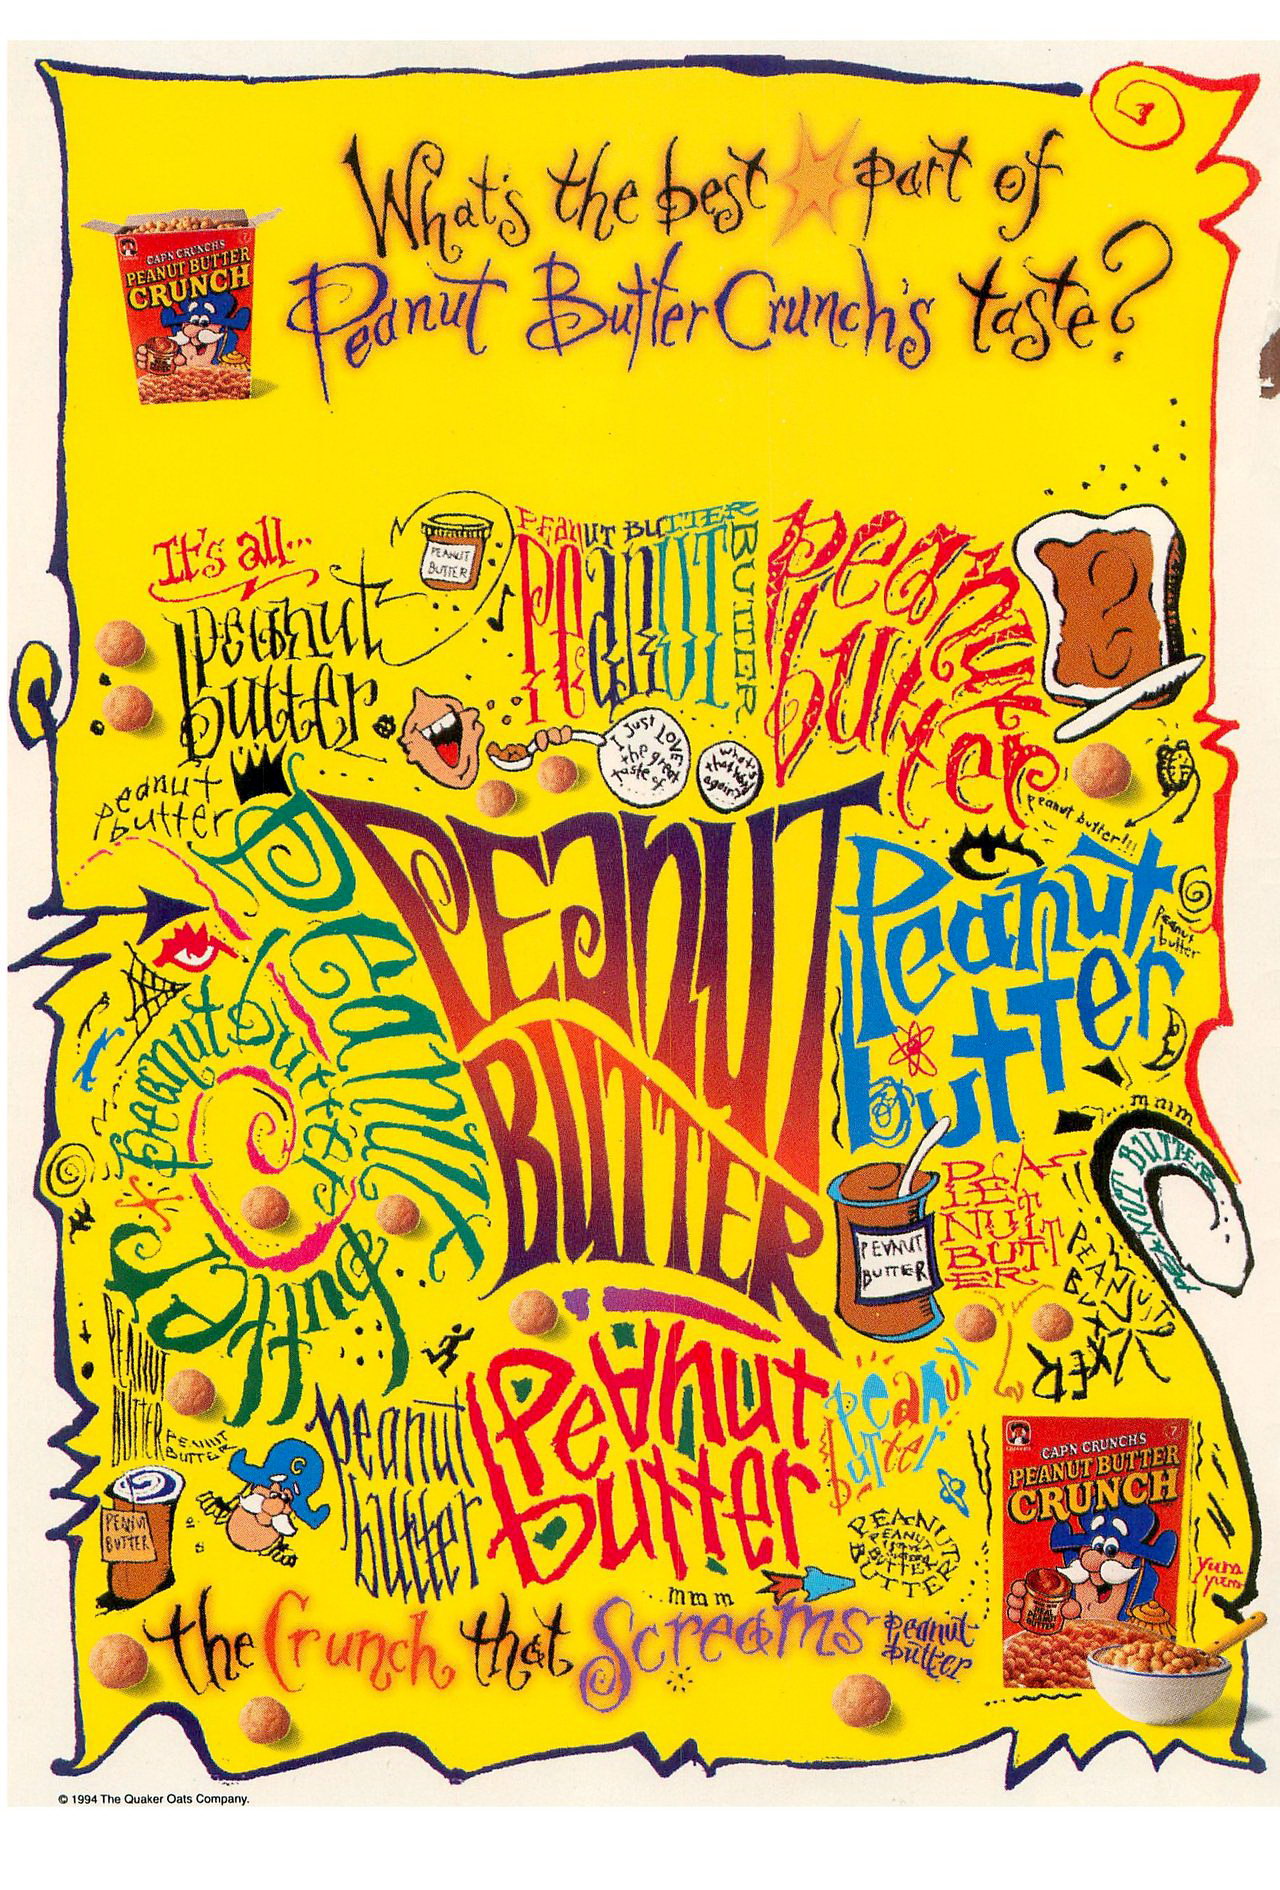 What's the best part of
Peanut Butter Crunch's taste?
CAP'N CRUNCH'S
PEANUT BUTTER
CRUNCH
It's all...
peanut
butter
PEANUT
BUTTER
PEANUT BUTTER
PEANUT
BUTTER
peanut
butter
I just LOVE
the great
taste of
what's
that word
again?
peanut
butter
peanut butter!!!
Peanut
Butter
PEANUT
BUTTER
Peanut
butter
peanut
butter
peanut
butter
mmm
PEANUT BUTTER
PEANUT
BUTTER
PEA
PEANUT
BUTTER
PEANUT
BUTTER
PEANUT
BUTTER
PEANUT
BUTTER
C
PEANUT
BUTTER
peanut
butter
Peanut
butter
peanut
butter
PEANUT
BUTTER
...mmm
CAP'N CRUNCH'S
PEANUT BUTTER
CRUNCH
yum
yum
the Crunch that Screams peanut
butter
© 1994 The Quaker Oats Company.